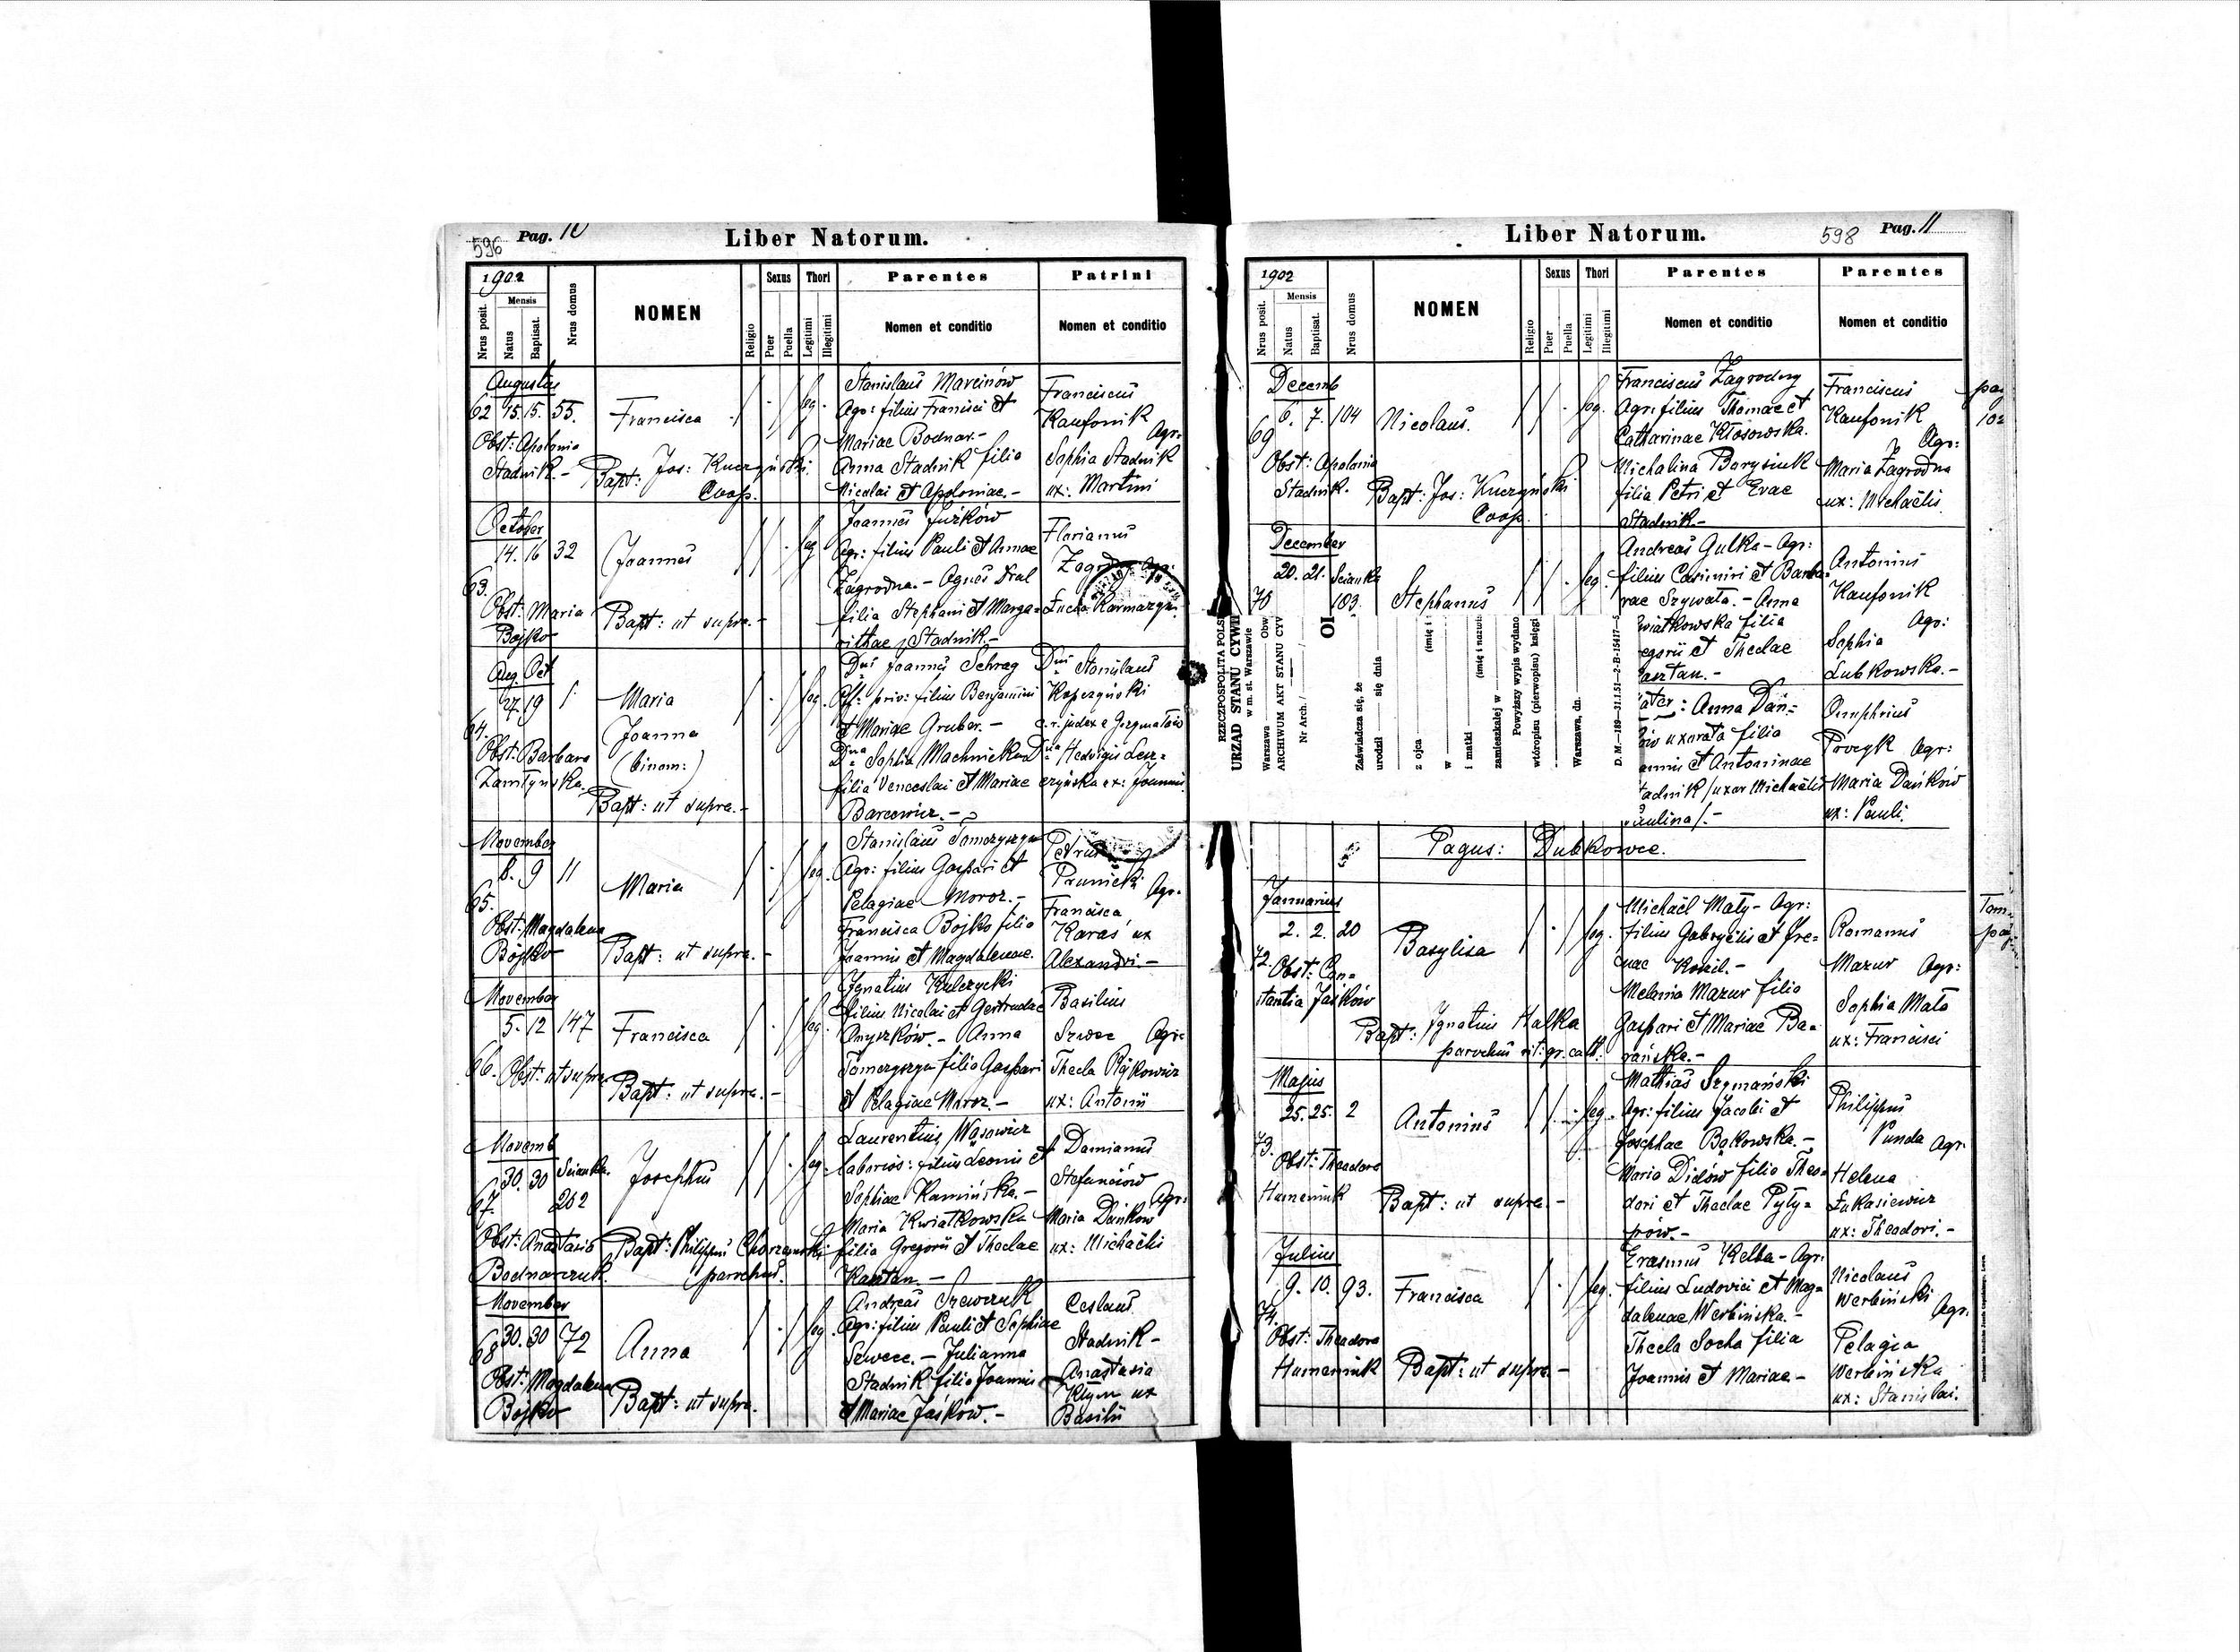 596 Pag. 10
Liber Natorum.
1902
Nrus posit.
Mensis
Natus
Baptisat.
Nrus domus
NOMEN
Religio
Sexus
Puer
Puella
Thori
Legitimi
Illegitimi
Parentes
Nomen et conditio
Patrini
Nomen et conditio
Augustus
62 15. 15. 55.
Obst: Apolonia
Stadnik.-
Francisca
Bapt: Jos: Kuczyński
Coop.
leg.
Stanislaus Marcinów
Agr: filius Francisci et
Mariae Bodnar.-
Anna Stadnik filia
Nicolai et Apoloniae.-
Franciscus
Kaufonik
Agr.
Sophia Stadnik
ux: Martini
October
14. 16 32
63.
Obst: Maria
Bojko
Joannes
Bapt: ut supra.-
leg
Joannes Jużków
Agr: filius Pauli et Annae
Zagrodna.- Agnes
filia Stephani et Marga=
rithae Stadnik.-
Florianus
Aug. Oct
27. 19 1
64.
Obst: Barbara
Maria
Joanna
(binom:)
Bapt: ut supra.-
leg.
Dnus Joannes Schrag
Off: priv: filius Benjamini
et Mariae Gruber.-
Dna Sophia Machnicka
filia Venceslai et Mariae
Barcewicz.-
Dnus Stanislaus
Kopczyński
Dna Hedvigis Lesz=
czyńska ux: Joannis
November
8. 9 11
65.
Obst: Magdalena
Bojko
Maria
Bapt: ut supra.-
leg.
Stanislaus Tomczyszyn
Agr: filius Gaspari et
Pelagiae Moroz.-
Francisca Bojko filia
Joannis et Magdalenae.
Petrus
Prunicki Agr.
Francisca
Karaś ux
Alexandri.-
November
5. 12 147
66. Obst: ut supra.
Francisca
Bapt: ut supra.-
leg.
Ignatius Kulczycki
filius Nicolai et Gertrudae
Onyszków.- Anna
Tomczyszyn filia Gaspari
et Pelagiae Moroz.-
Basilius
Szwec Agr:
Thecla
ux: Antonii
Novemb
30. 30 Scianka.
67. 202
Obst: Anastasia
Bodnarczuk.
Josephus
Bapt: Philippus
parochus.
leg.
Laurentius Wąsowicz
laborios: filius Leonis et
Sophiae Kamińska.-
Maria Kwiatkowska
filia Gregorii et Theclae
Kasztan.-
Damianus
Stefanciów
Agr:
Maria Dańków
ux: Michaëlis
November
68 30. 30 72
Obst: Magdalena
Bojko
Anna
Bapt: ut supra.
leg.
Andreas Szewczuk
Agr: filius Pauli et Sophiae
Szwec.- Julianna
Stadnik filia Joannis
et Mariae Jaśków.-
Ceslaus
Stadnik-
Anastasia
Klym ux
Basilii
Liber Natorum.
598 Pag. 11
1902
Nrus posit.
Mensis
Natus
Baptisat.
Nrus domus
NOMEN
Religio
Sexus
Puer
Puella
Thori
Legitimi
Illegitimi
Parentes
Nomen et conditio
Parentes
Nomen et conditio
Decemb
6. 7. 104
69
Obst: Apolonia
Stadnik.
Nicolaus.
Bapt: Jos: Kuczyński
Coop.
leg.
Franciscus Zagrodny
Agr: filius Thomae et
Catharinae Kłosowska.
Michalina Borysiuk
filia Petri et Evae
Stadnik.-
Franciscus
Kaufonik
Agr:
Maria Zagrodna
ux: Michaëlis.
December
20. 21. Scianka
70 183.
Stephanus
leg.
Andreas Gulka- Agr:
filius Casimiri et Barba=
rae Szywała.- Anna
wiatkowska filia
egorii et Theclae
asztan.-
Antonius
Kaufonik
Agr:
Sophia
Lubkowska.-
RZECZPOSPOLITA POLS
URZĄD STANU CYWI
w m. st. Warszawie
Warszawa Obw.
ARCHIWUM AKT STANU CYW
Nr Arch. /
Zaświadcza się, że
urodził się dnia
z ojca
(imię i
w
i matki
(imię i nazwis
zamieszkałej w
Powyższy wypis wydano
wtóropisu (pierwopisu) księgi
Warszawa, dn.
ater: Anna Dań=
ów uxorata filia
annis et Antoninae
tadnik /uxor Michaëlis
Paulina/.-
Onuphrius
Agr:
Maria Dańków
ux: Pauli.
Pagus: Dubkowce.
Januarius
2. 2. 20
72. Obst: Con=
stantia Jaśków
Basylisa
Bapt: Ignatius Halka
parochus rit: gr. cath.
leg.
Michaël Mały- Agr:
filius Gabryëlis et Ire=
nae Kozil.-
Melania Mazur filia
Gaspari et Mariae Ba=
rańska.-
Romanus
Mazur Agr:
Sophia Mała
ux: Francisci
Majus
25. 25. 2
73.
Obst: Theodora
Humeniuk
Antonius
Bapt: ut supra.-
leg.
Mathias Szymański
Agr: filius Jacobi et
Josephae Bąkowska.-
Maria Didów filia Theo=
dori et Theclae Pyły=
pów.-
Philippus
Punda Agr.
Helena
Łukasiewicz
ux: Theodori.-
Julius
9. 10. 93.
74.
Obst: Theodora
Humeniuk
Francisca
Bapt: ut supra.-
leg.
Erasmus Kelba- Agr:
filius Ludovici et Mag=
dalenae Werbińska.-
Thecla Socha filia
Joannis et Mariae.-
Nicolaus
Werbiński
Agr.
Pelagia
Werbińska
ux: Stanislai.